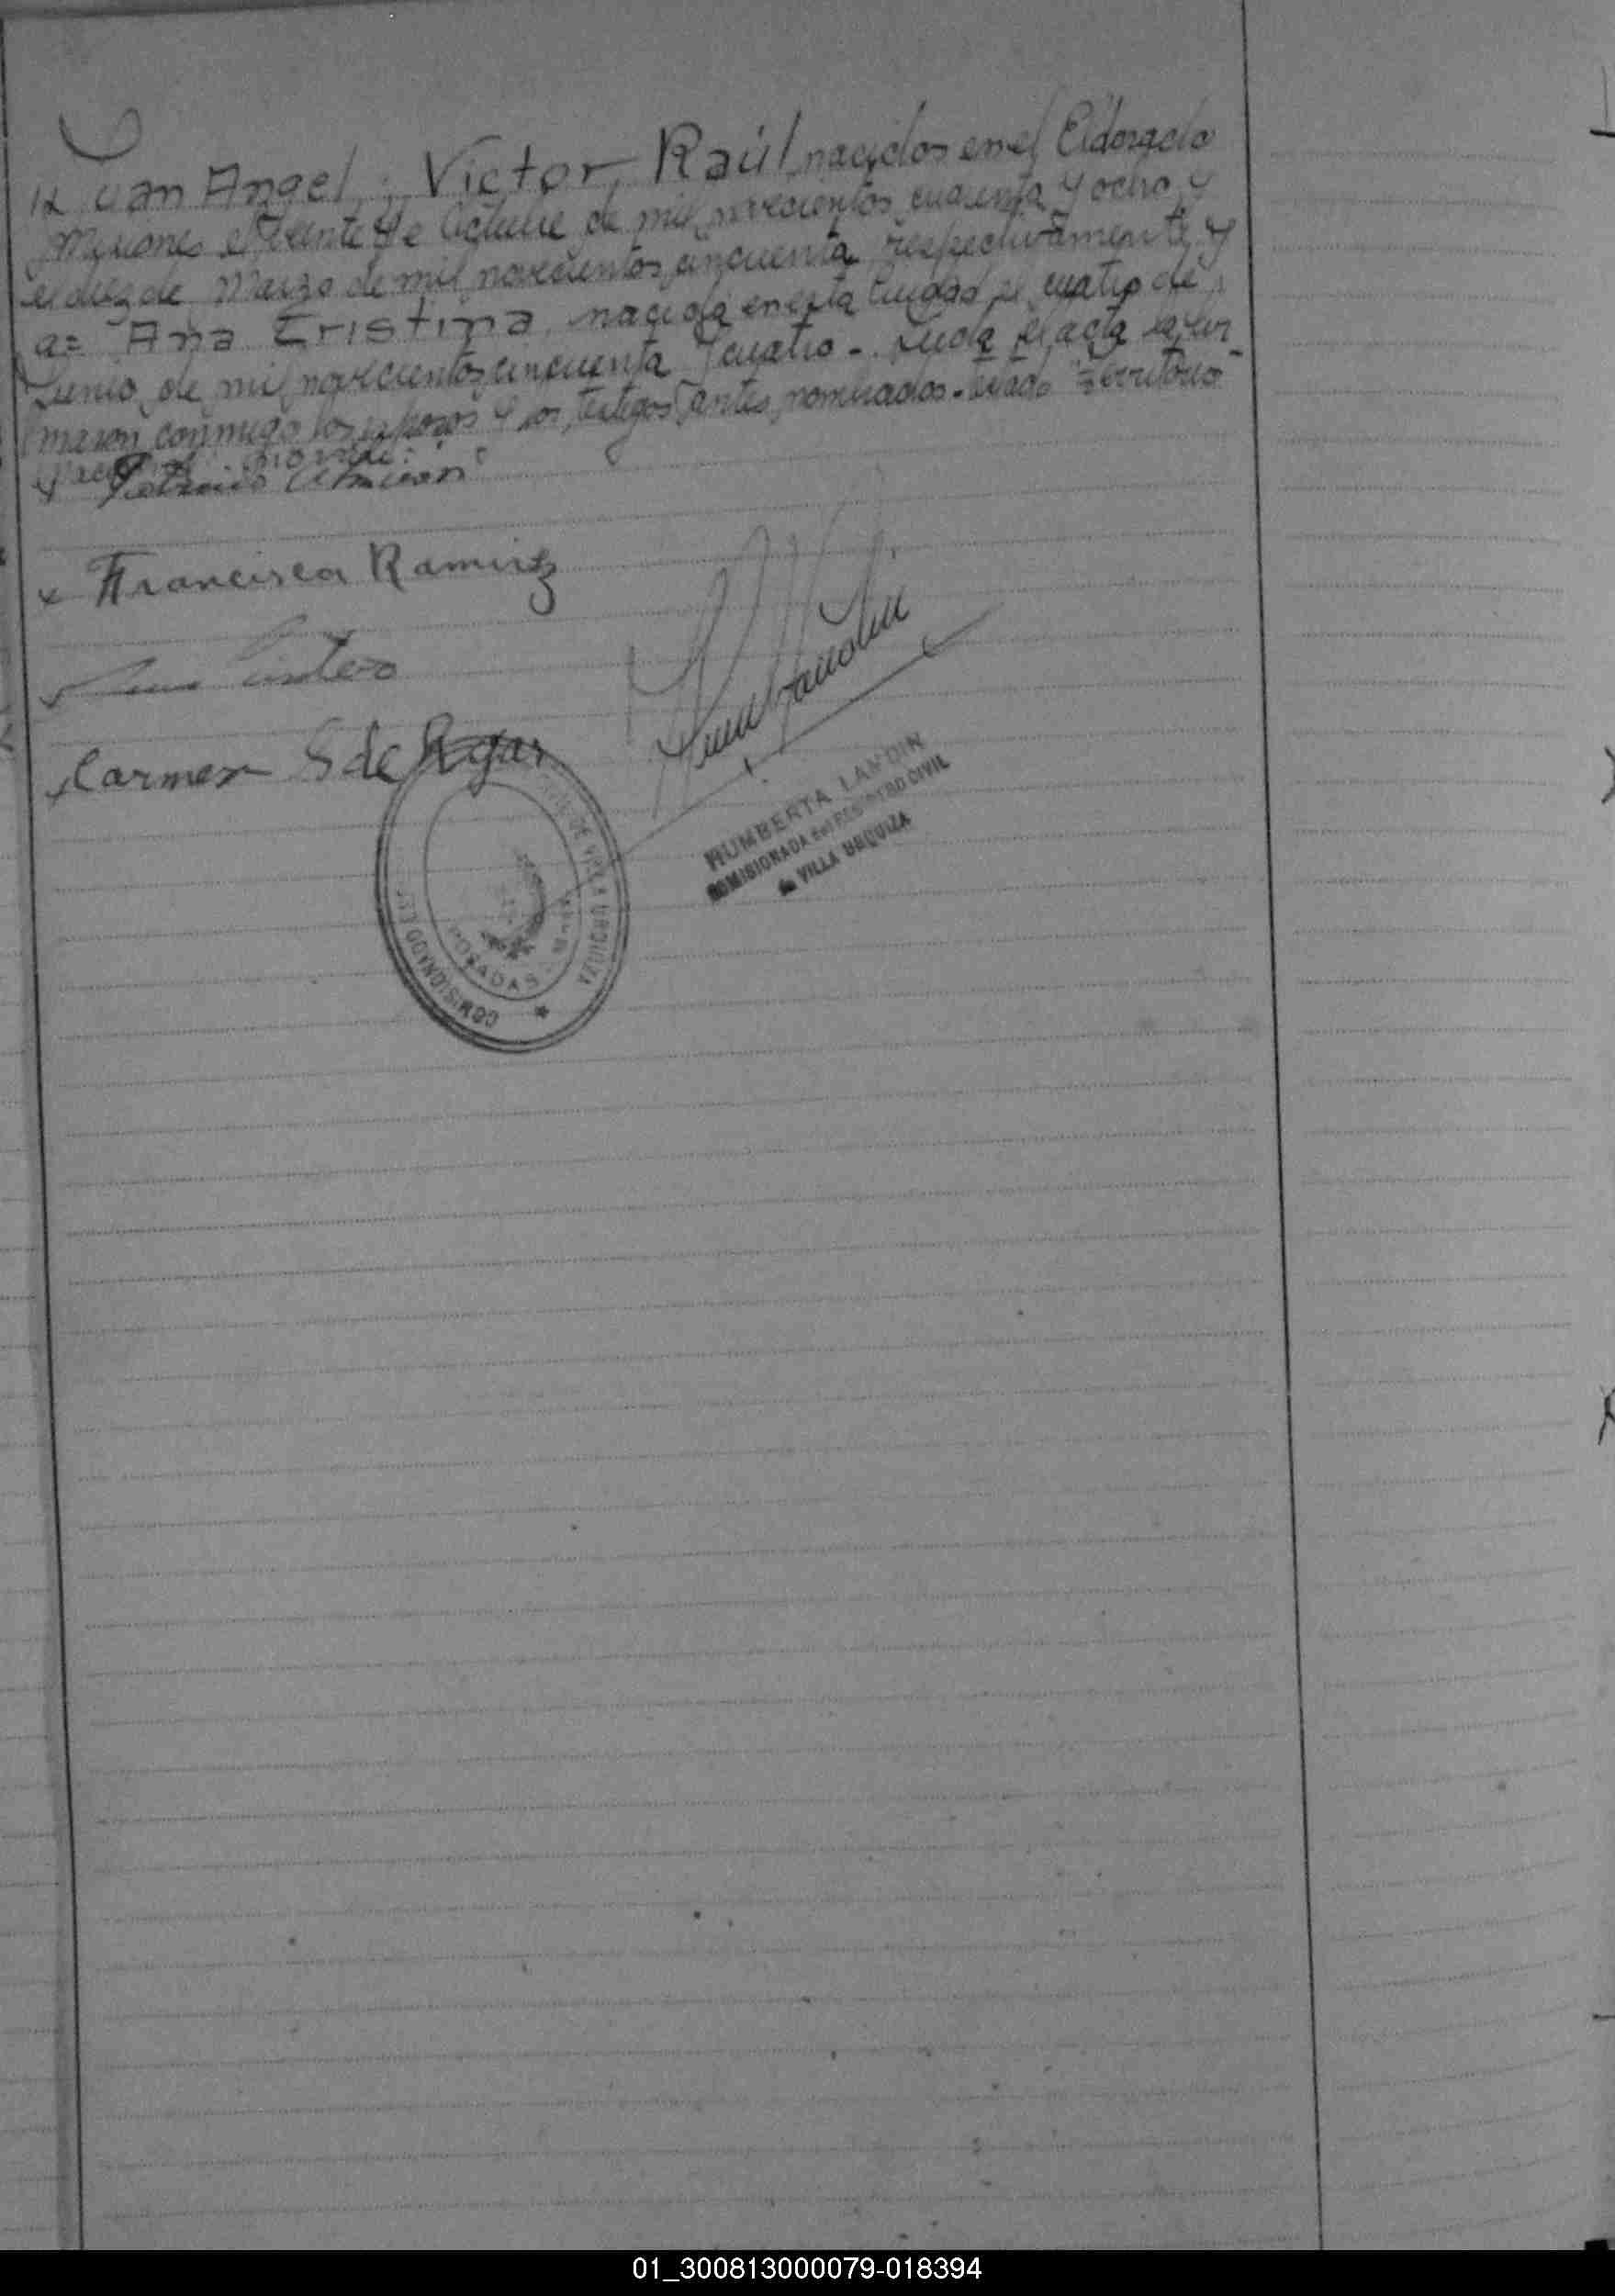 Juan Angel; Victor Raúl nacidos en el Eldorado
Misiones el veinte de Octubre de mil novecientos cuarenta y ocho y
el diez de Marzo de mil novecientos cincuenta respectivamente y
a= Ana Cristina nacida en esta Ciudad el cuatro de
Junio de mil novecientos cincuenta y cuatro - Leida el acta la fir
maron conmigo los esposos y los testigos antes nombrados - Testado "Territorio
Francisca Ramirez
Carmen S de
HUMBERTA LANDIN
COMISIONADA del REGISTRO CIVIL
de VILLA URQUIZA
COMISIONADO DEL DE VILLA URQUIZA
POSADAS
01_300813000079-018394